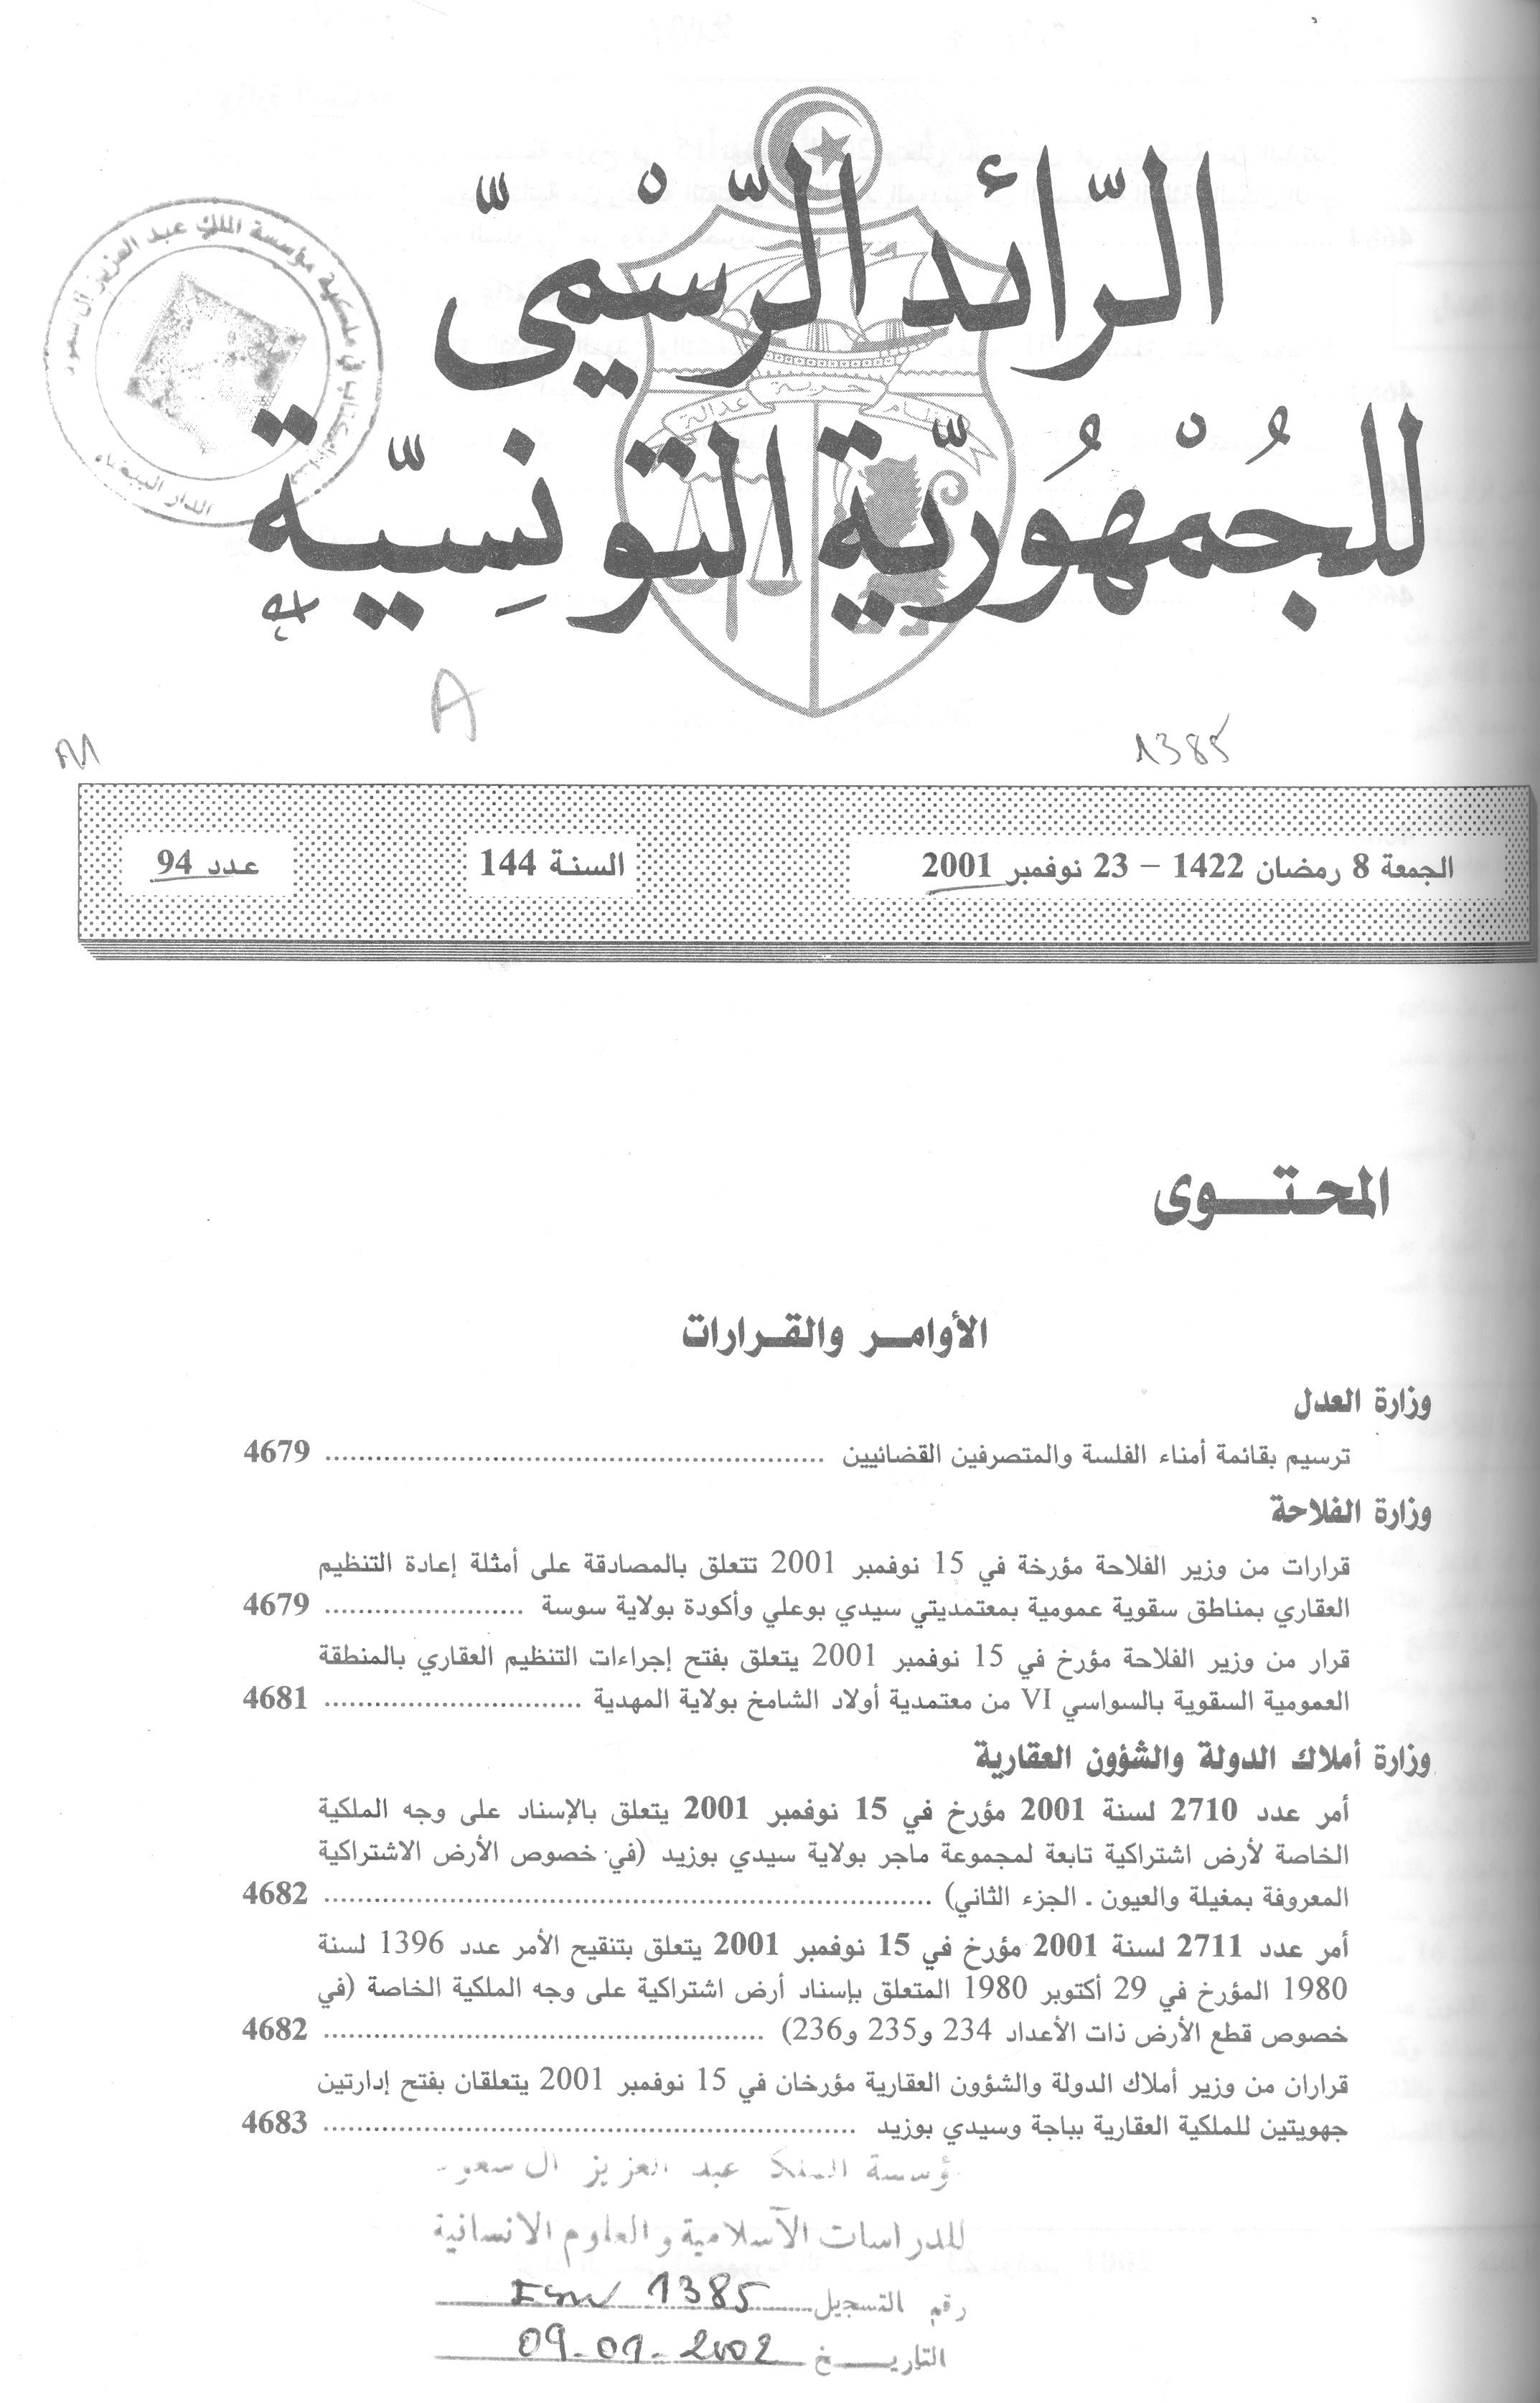 الرّائد الرّسْميّ
نظام حرية عدالة
للجُمْهُوريّة التونِسيّة
مؤسسة الملك عبد العزيز آل سعود
الدار البيضاء
A
A1
1385
الجمعة 8 رمضان 1422 – 23 نوفمبر 2001
السنة 144
عدد 94
المحتوى
الأوامر والقرارات
وزارة العدل
ترسيم بقائمة أمناء الفلسة والمتصرفين القضائيين ................ 4679
وزارة الفلاحة
قرارات من وزير الفلاحة مؤرخة في 15 نوفمبر 2001 تتعلق بالمصادقة على أمثلة إعادة التنظيم
العقاري بمناطق سقوية عمومية بمعتمديتي سيدي بوعلي وأكودة بولاية سوسة ................ 4679
قرار من وزير الفلاحة مؤرخ في 15 نوفمبر 2001 يتعلق بفتح إجراءات التنظيم العقاري بالمنطقة
العمومية السقوية بالسواسي VI من معتمدية أولاد الشامخ بولاية المهدية ................ 4681
وزارة أملاك الدولة والشؤون العقارية
أمر عدد 2710 لسنة 2001 مؤرخ في 15 نوفمبر 2001 يتعلق بالإسناد على وجه الملكية
الخاصة لأرض اشتراكية تابعة لمجموعة ماجر بولاية سيدي بوزيد (في خصوص الأرض الاشتراكية
المعروفة بمغيلة والعيون ـ الجزء الثاني) ................ 4682
أمر عدد 2711 لسنة 2001 مؤرخ في 15 نوفمبر 2001 يتعلق بتنقيح الأمر عدد 1396 لسنة
1980 المؤرخ في 29 أكتوبر 1980 المتعلق بإسناد أرض اشتراكية على وجه الملكية الخاصة (في
خصوص قطع الأرض ذات الأعداد 234 و235 و236) ................ 4682
قراران من وزير أملاك الدولة والشؤون العقارية مؤرخان في 15 نوفمبر 2001 يتعلقان بفتح إدارتين
جهويتين للملكية العقارية بباجة وسيدي بوزيد ................ 4683
مؤسسة الملك عبد العزيز آل سعود
للدراسات الآسلامية والعلوم الانسانية
رقم التسجيل 1385
التاريخ 09-01-2002